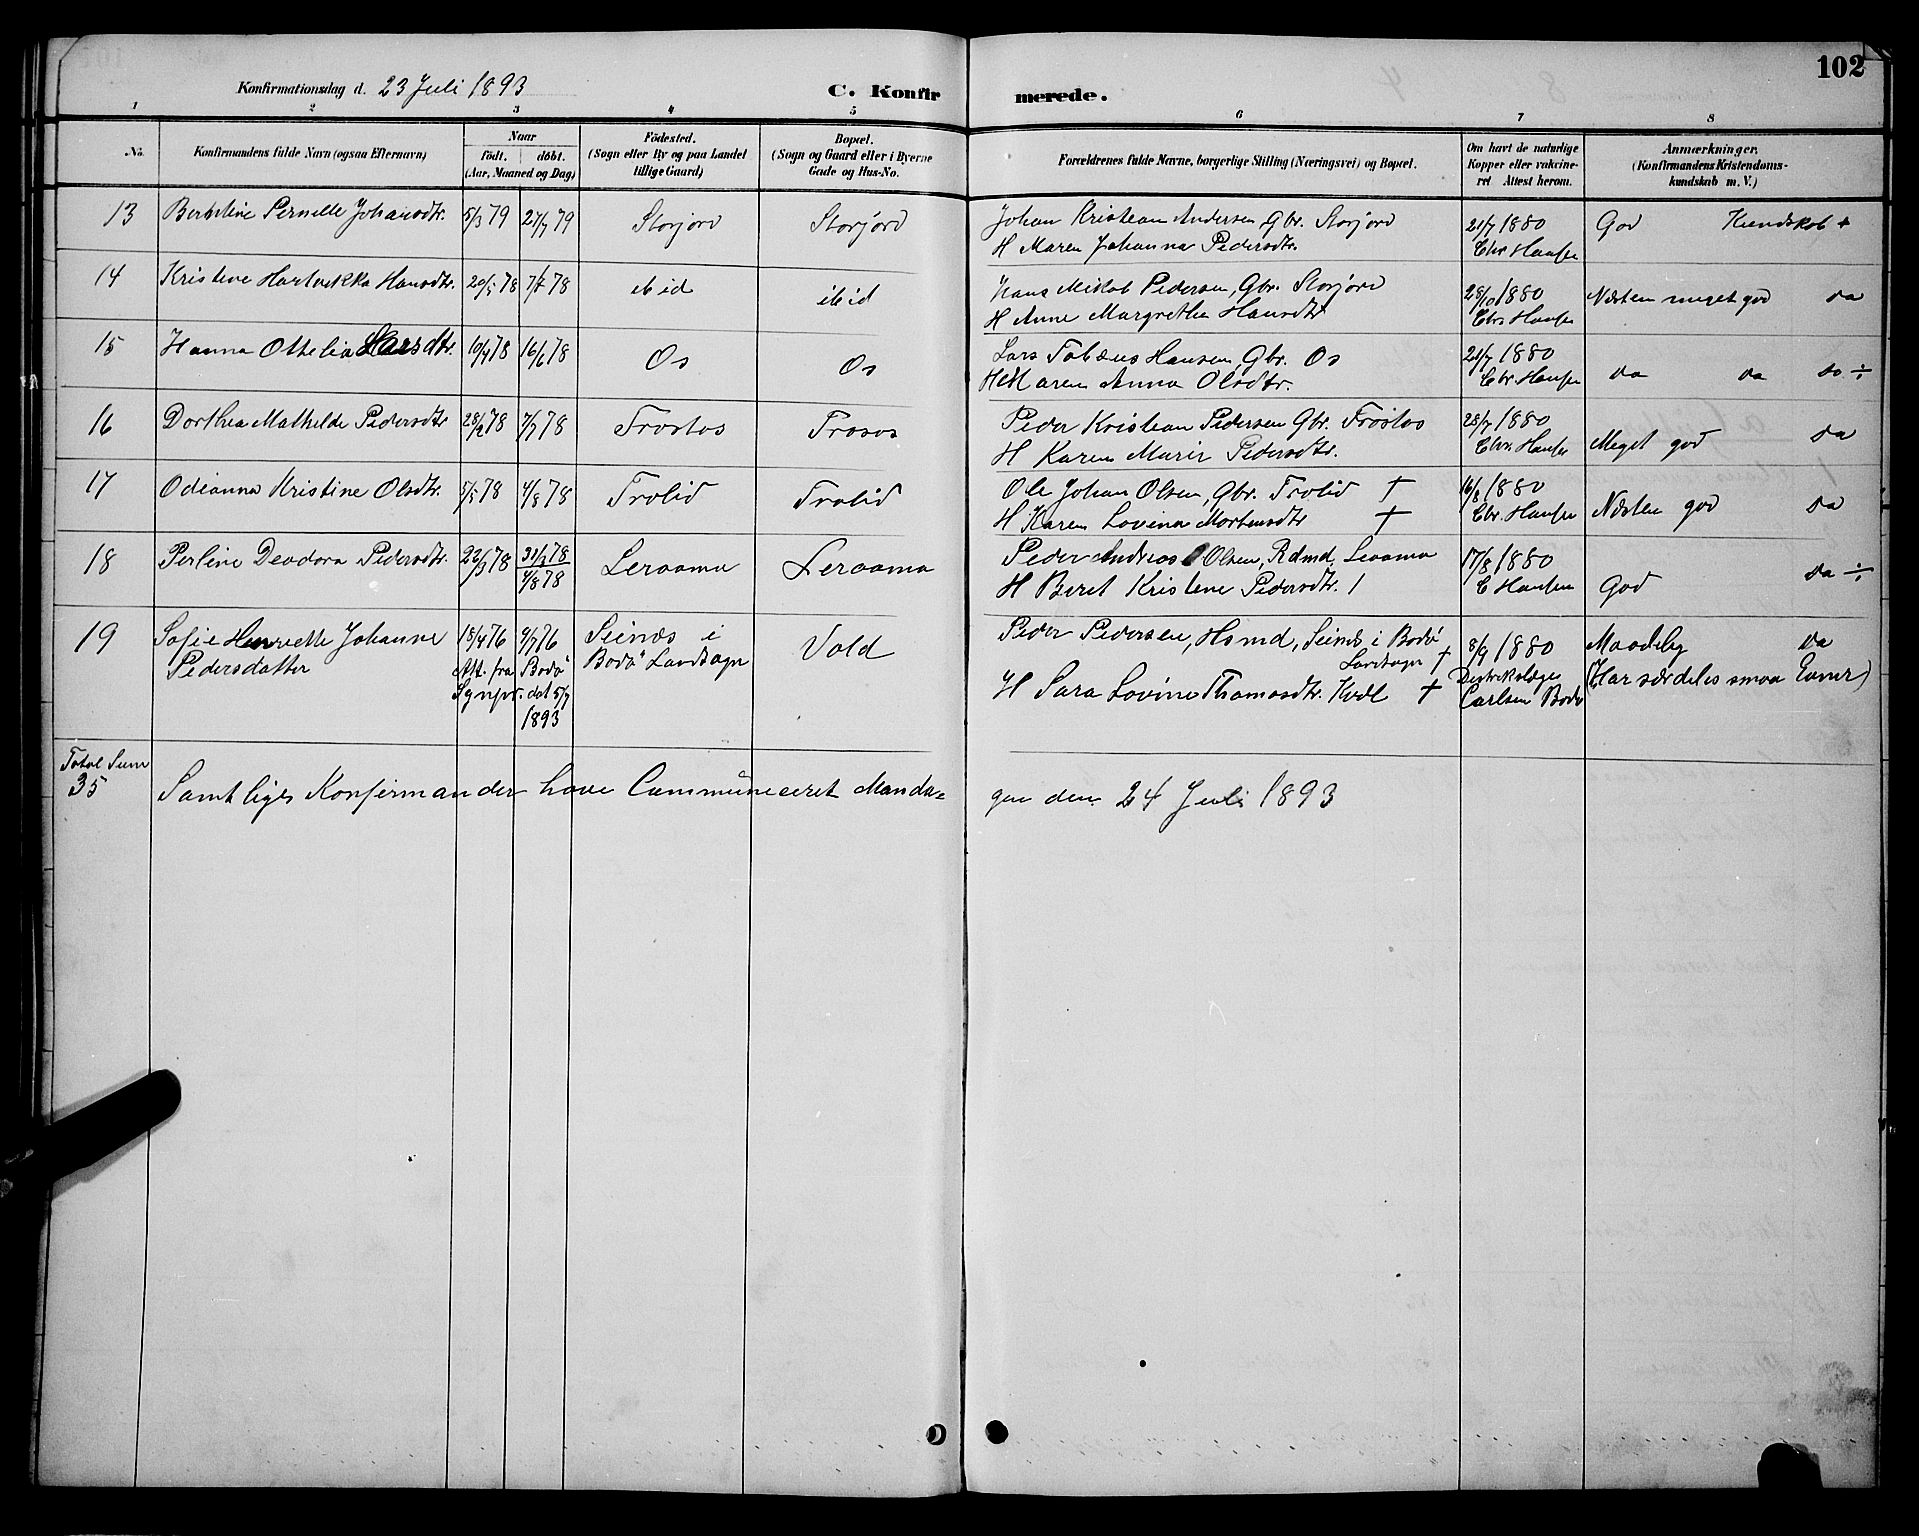 102
Konfirmationsdag d. 23 Juli 1893
C. Konfirmerede.
1 2 3 4 5 6 7 8
No. Konfirmandens fulde Navn (ogsaa Efternavn) Naar født. døbt. (Aar, Maaned og Dag) Fødested. (Sogn eller By og paa Landet tillige Gaard) Bopæl. (Sogn og Gaard eller i Byerne Gade og Hus-No. Forældrenes fulde Navne, borgerlige Stilling (Næringsvei) og Bopæl. Om havt de naturlige Kopper eller vakcineret Attest herom. Anmærkninger. (Konfirmandens Kristendomskundskab m. V.)
13 Pernelle Johansdtr. 5/3 79 27/7 79 Storjord Storjord Johan Kristian Andersen, Gbr. Storjord 21/7 1880 God Kundskab +
H Maren Johanna Pedersdtr. Chr. Hansen
14 Kristine Hartvikka Hansdtr. 20/5 78 7/7 78 ibid ibid Hans Mikal Pedersen, Gbr. Storjord 28/10 1880 Næsten meget god do
H Anne Margrethe Hansdtr Chr. Hansen
15 Hanna Othelia Larsdtr. 10/4 78 16/6 78 Os Os Lars Tobæus Hansen, Gbr. Os 21/7 1880 do do do ÷
H Maren Anna Olsdtr. Chr. Hansen
16 Dorthea Mathilde Pedersdtr 28/2 78 7/7 78 Trostos Trosos Peder Kristian Pedersen Gbr. Trostos 28/7 1880 Meget god do
H Karen Marie Pedersdtr. Chr. Hansen
17 Odianna Kristine Olsdtr. 5/5 78 4/8 78 Trolid Trolid Ole Johan Olsen, Gbr. Trolid † 16/8 1880 Næsten god do
H Karen Lovina Mortensdtr † Chr. Hansen
18 Perline Deodora Pedersdtr. 22/3 78 31/3 78 4/8 78 Leraama Leraama Peder Andreas Olsen, Rdmd, Leraama 17/8 1880 God do ÷
H Beret Kristine Pedersdtr. C Hansen
19 Sofie Henriette Johanne 18/4 76 9/7 76 Seines i Vold Peder Pedersen, Hsmd, Seines i Bodø 8/9 1880 Maadelig do
Pedersdatter Att. fra Bodø Bodø Landsogn Landsogn † Distriktslæge (Har særdeles smaa Evner)
Sgnpr. dat 5/7 1893 H Sara Lovine Thomasdtr. Kvel † Carlsen Bodø
Total Sum
35 Samtlige Konfirmander have Communiceret Mandagen den 24 Juli 1893